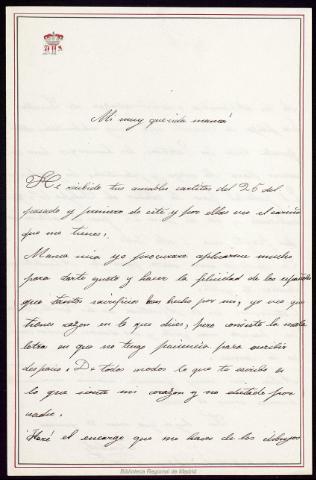 Mi muy querida mamá
He recibido tus amables cartitas del 25 del
pasado y primero de este y por ellas veo el cariño
que me tienes.
Mama mia yo procurare aplicarme mucho
para darte gusto y hacer la felicidad de los españoles
que tantos sacrificios han hecho por mi, yo veo que
tienes razon en lo que dices, pero consiste la mala
letra en que no tengo paciencia para escribir
despacio. De todos modos lo que te escribo es
lo que siente mi corazon y no dictado por
nadie.
Haré el encargo que me haces de los dibujos
Biblioteca Regional de Madrid